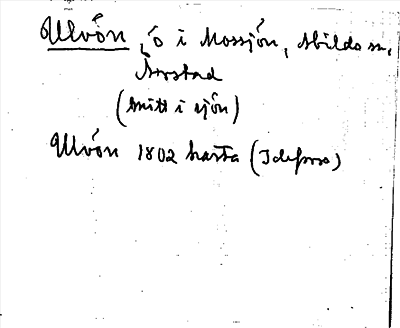 Ulvön, ö i Mossjön, Abildo sn.
Ärstad
(mitt i sjön)
Ulvön 1802 karta (Idefors)